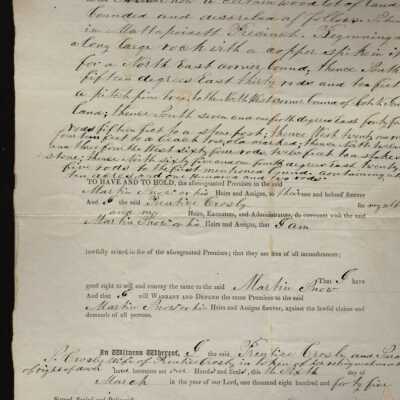 a certain wood lot of land
bounded and described as follows
in Mattapoisett Precinct. Beginning
along large rock with a copper spike in it
for a North East corner bound, thence South
fifteen degrees East thirty rods and ten feet
a pitch pine tree, to the North West corner bound of
land; thence south seven and one fourth degrees East forty four
rods fifteen feet to a stone thence West twenty
four ten feet to a
stone; thence North sixty five and one fourth degrees East twenty
five rods to the first mentioned bound, containing
ten acres
TO HAVE AND TO HOLD, the aforegranted Premises to the said
Martin Snow or his Heirs and Assigns, to their use and behoof forever
And I the said Prentice Crosby for myself
and my Heirs, Executors, and Administrators, do covenant with the said
Martin Snow or his Heirs and Assigns, that I am
lawfully seized in fee of the aforegranted Premises; that they are free of all incumbrances;
That I have
good right to sell and convey the same to the said Martin Snow
And that I will WARRANT AND DEFEND the same Premises to the said
Martin Snow or his Heirs and Assigns forever, against the lawful claims and
demands of all persons.
In Witness Whereof, I the said Prentice Crosby and
P. Crosby wife of Prentice Crosby in token of her relinquishment
of right of dower hereunto set our Hands and Seals, this Sixth day of
March in the year of our Lord, one thousand eight hundred and forty five
Signed, Sealed and Delivered